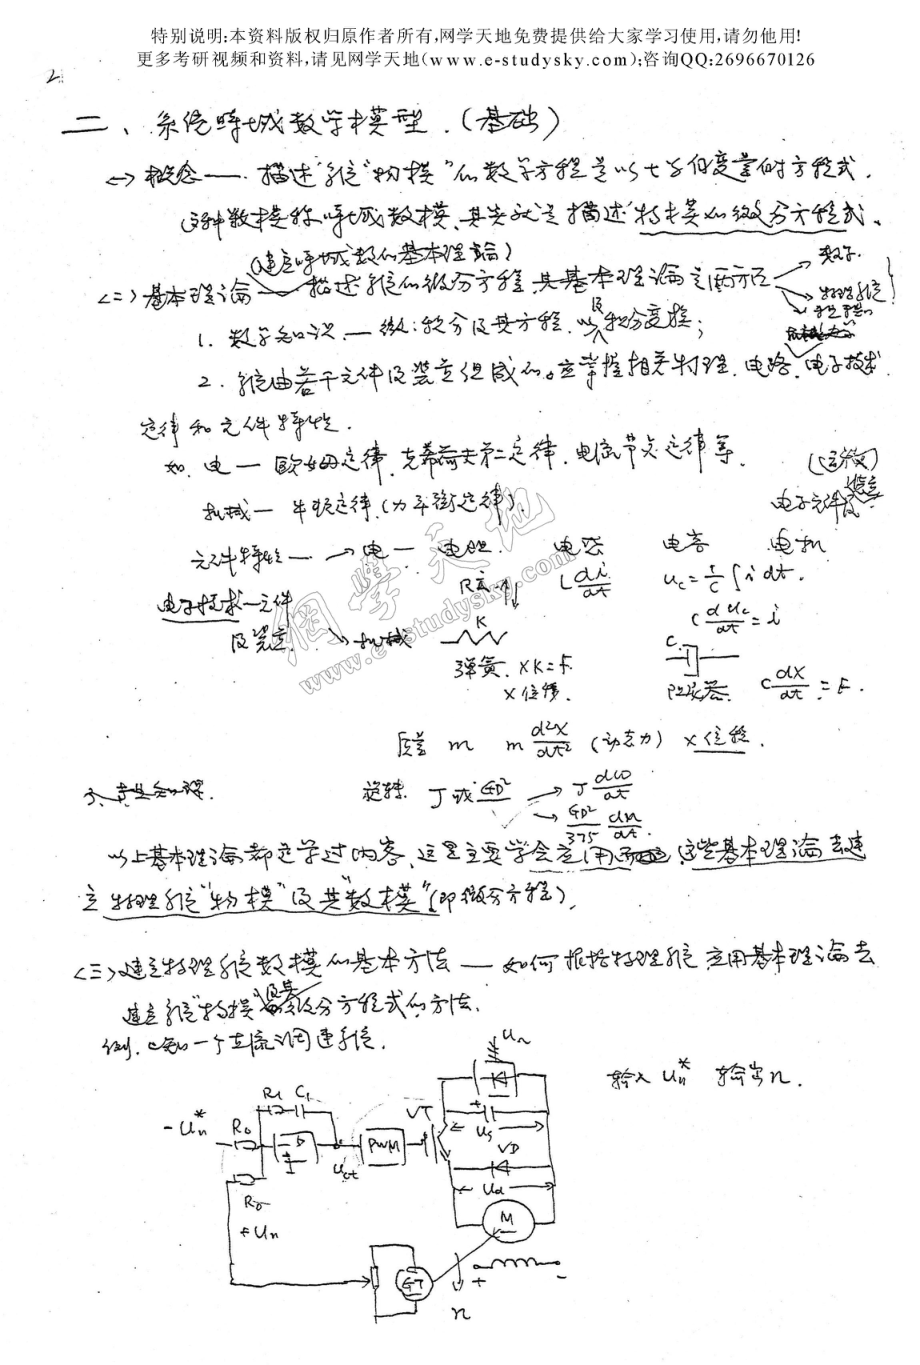 特别说明:本资料版权归原作者所有,网学天地免费提供给大家学习使用,请勿他用!
更多考研视频和资料,请见网学天地(www.e-studysky.com);咨询QQ:2696670126
2.
二、系统时域数学模型.(基础)
<一>概念——描述系统"物模"的数学方程是以t为自变量的时方程式.
这种数模称时域数模,其实就是描述物模的微分方程式、
(建立时域数的基本理论)
<二>基本理论——描述系统的微分方程.其基本理论主要两方面
数学.
物理系统
1. 数学知识—微:积分及其方程.以及积分变换;
2. 系统由若干元件及装置组成的。应掌握相关物理、电路、电子技术
定律和元件特性.
如. 电—欧姆定律.克希荷夫第二定律.电流节点定律等.
(运放)
机械—牛顿定律.(力平衡定律).
电子元件及装置
元件特性—→电—电阻 电感 电容 电机
Ri L di/dt uc=1/C∫idt.
电子技术—元件
及装置.
C duc/dt = i
机械
K
C
弹簧. XK=F.
X位移.
阻尼器. C dX/dt = F.
质量 m m d²X/dt² (动态力) X位移.
旋转. J或GD² → J dω/dt
→ GD²/375 dn/dt.
以上基本理论都是学过内容,这里主要学会应用这些基本理论去建
立物理系统"物模"及其"数模"(即微分方程).
<三>建立物理系统数模的基本方法—如何根据物理系统应用基本理论去
建立系统"物模"及其微分方程式的方法.
例. 已知一个直流调速系统.
U~
输入 Un* 输出 n.
R1 C1
-Un* R0
Uct
PWM
VT
Us
VD
Ud
R0
+Un
M
GT
n
+ -
網學天地
www.e-studysky.com